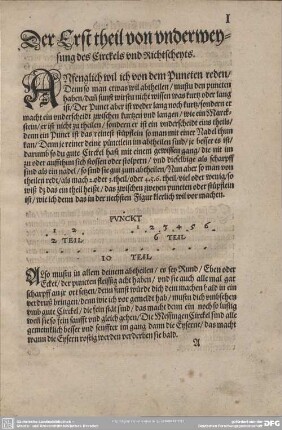 I
Der Erst theil von vnderwey-
sung des Circkels vnd Richtscheyts.
ANfenglich wil ich von dem Puncten reden/
Denn so man etwas wil abtheilen / mustu den puncten
haben/ daß sunst wirstu nicht wissen was kurtz oder lang
ist/ Der Punct aber ist weder lang noch kurtz/ sondern er
macht ein vnderscheidt zwischen kurtzen vnd langen / wie ein
stein/ er ist nicht zu theilen/ sondern er ist ein vnderscheidt eins theils/
denn ein Punct ist das reinest stüpfflein so man mit einer Nadel thun
kan/ Denn je reiner deine pünctlein im abtheilen sind/ je besser es ist/
darumb so du gute Circkel hast mit einen gewissen gang/ die mit im
zu oder auffthun sich stossen oder stolpern/ vnd dicklige als scharpff
sind als ein nadel/ so sind sie gut zum abtheilen/ Nun aber so man von
theilen redt/ als mach 2. oder 3. theil/ oder 4. 5. 6. theil/ viel oder wenig/ so
wiß du das ein theil heist/ das zwischen zweyen puncten oder stüpfflein
ist/ wie ich denn das in der nehsten Figur klerlich wil vor machen.
PVNCKT
1 2 1 2 3 4 5 6
2 TEIL 6 TEIL
10 TEIL
ALso mustu in allem deinem abtheilen/ er sey Rund/ Eben oder
Eckel/ der puncten fleissig acht haben/ vnd sie auch alle mal gar
scharpff an setzen/ denn sunst würde dich dein machen alle in ein
verdruß bringen/ denn wie ich vor gemelt hab/ mustu dich
vmb gute Circkel/ die fein stät sind/ das macht denn ein noch so lustig
weil sie so fein saufft vnd gleich gehen/ Die Messingen Circkel sind alle
gemeintlich besser vnd senffter im gang dann die Eyserne/ das macht
wann die Eysern rostig werden verderben sie bald.
A
DFG